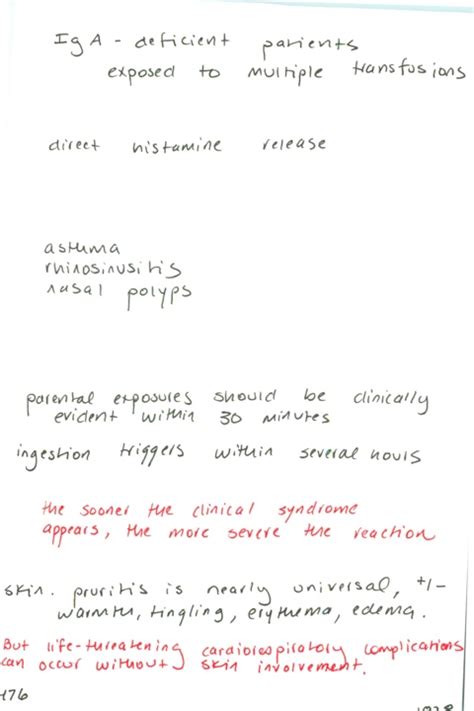 IgA - deficient patients
exposed to multiple transfusions
direct histamine release
asthma
rhinosinusitis
nasal polyps
parental exposures should be clinically
evident within 30 minutes
ingestion triggers within several hours
the sooner the clinical syndrome
appears, the more severe the reaction
skin. pruritis is nearly universal, +/-
warmth, tingling, erythema, edema.
But life-threatening cardiorespiratory complications
can occur without skin involvement.
476